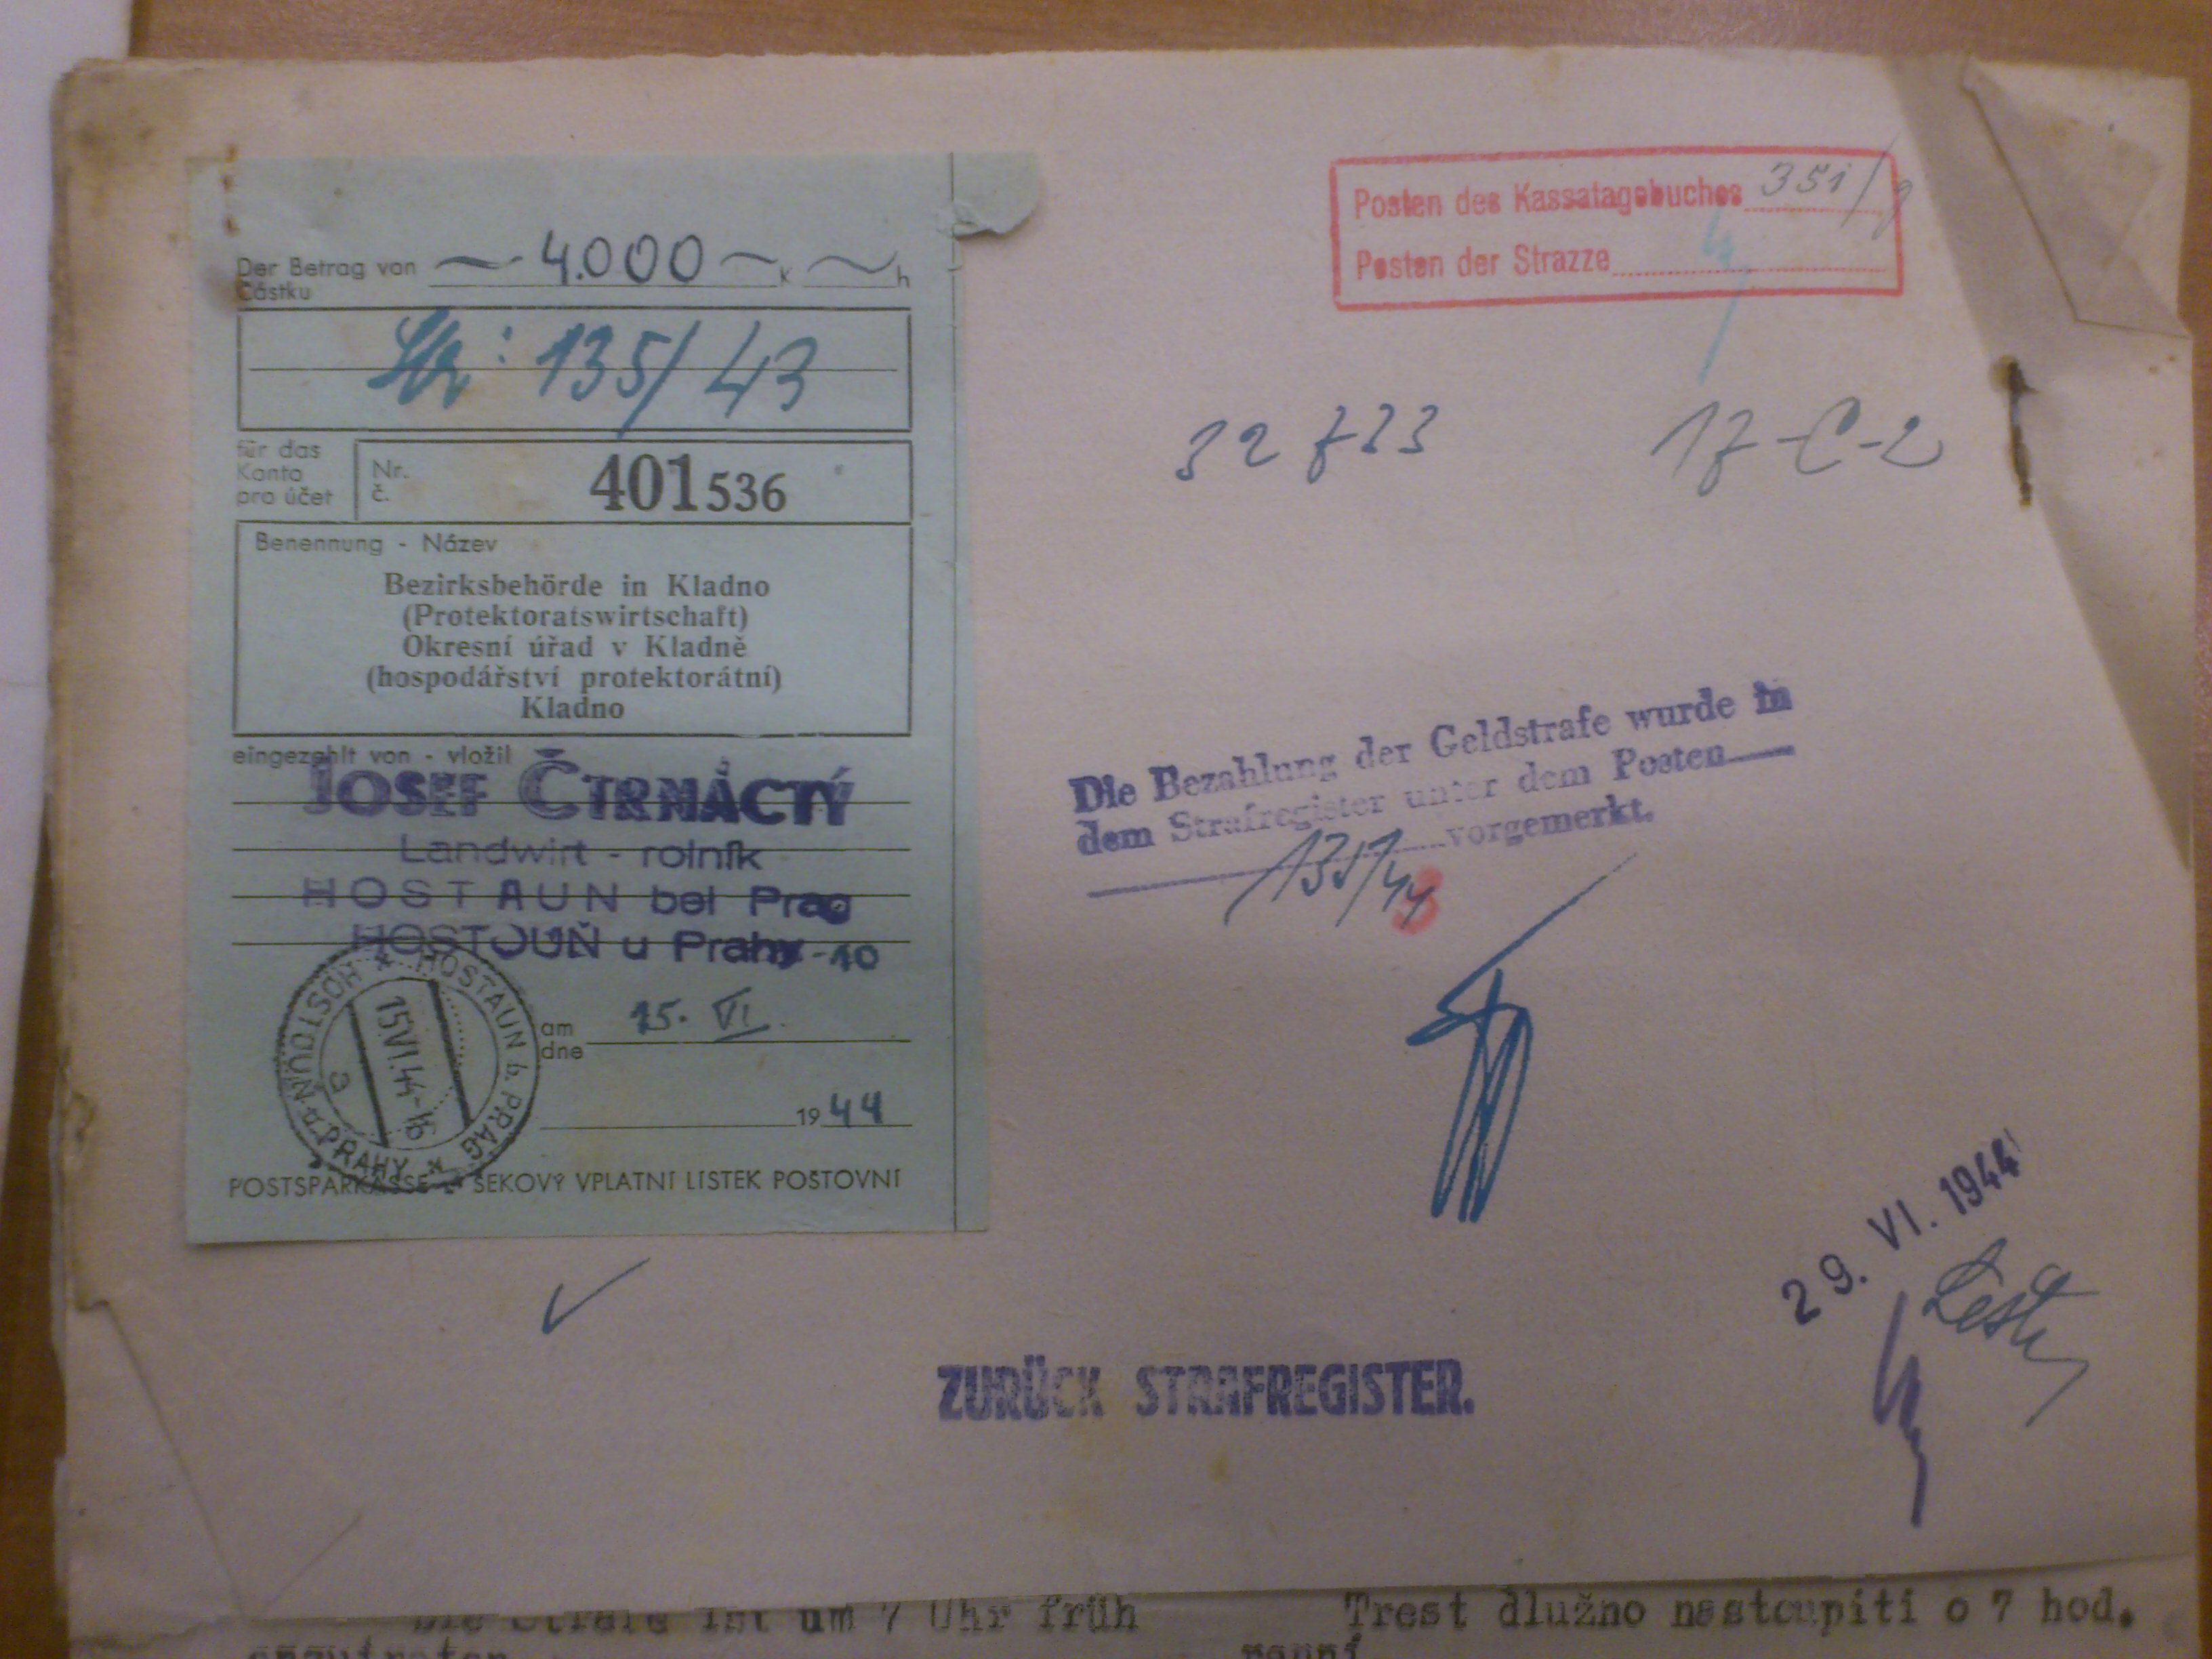 Der Betrag von 4.000 K h
Částku
135/43
für das
Konto
pro účet
Nr.
č.
401536
Benennung - Název
Bezirksbehörde in Kladno
(Protektoratswirtschaft)
Okresní úřad v Kladně
(hospodářství protektorátní)
Kladno
eingezahlt von - vložil
JOSEF ČTRNÁCTÝ
Landwirt - rolník
HOSTAUN bei Prag
HOSTOUŇ u Prahy - 10
HOSTAUN b. PRAG
15VI.44-16
a
HOSTOUŇ u PRAHY
am
dne
15. VI.
1944
POSTSPARKASSE ŠEKOVÝ VPLATNÍ LÍSTEK POŠTOVNÍ
Posten des Kassatagebuches 351/
Posten der Strazze
32 723 17-C-2
Die Bezahlung der Geldstrafe wurde in
dem Strafregister unter dem Posten
135/44 vorgemerkt.
3
29. VI. 1944
ZURÜCK STRAFREGISTER.
Die Strafe ist um 7 Uhr früh
anzutreten.
Trest dlužno nastoupiti o 7 hod.
ranní